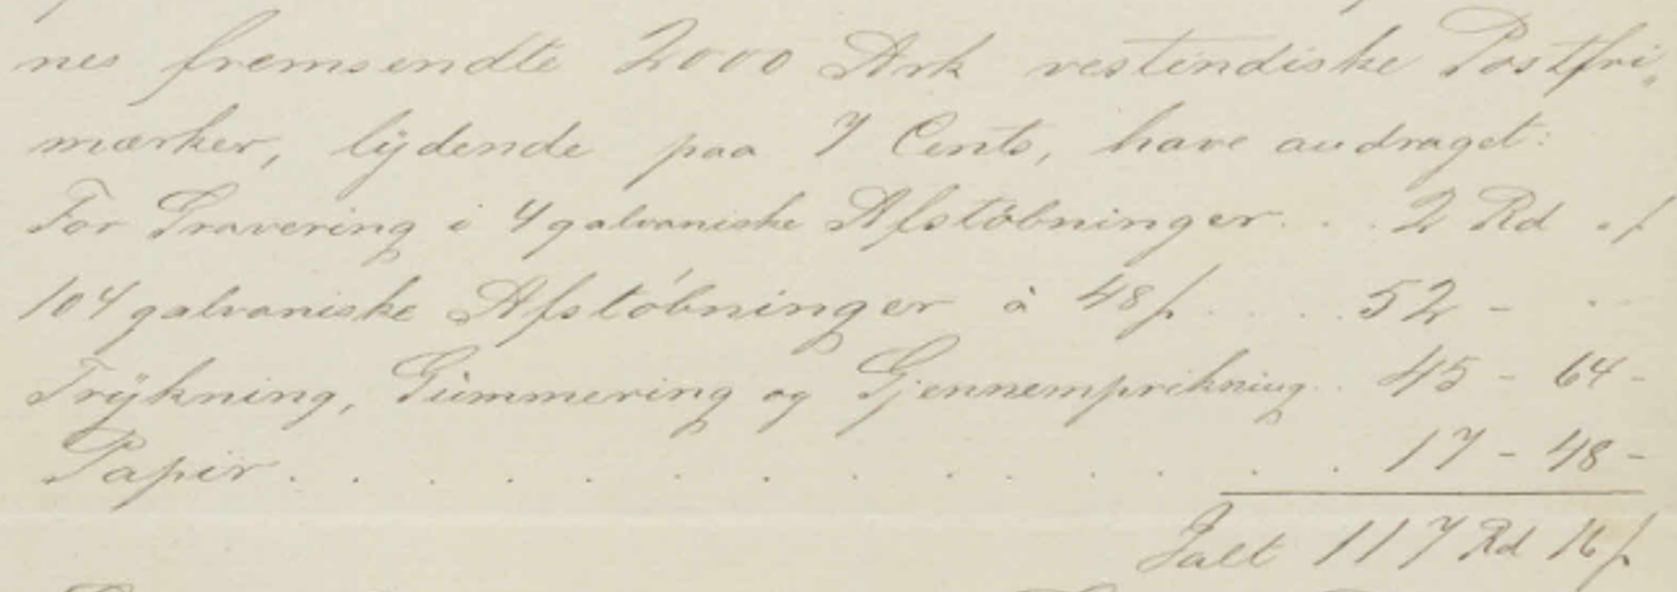 nes fremsendte 2000 Ark vestindiske Postfri„
mærker, lydende paa 7 Cents, have andraget:
For Gravering i 4 galvaniske Afstøbninger . . . 2 Rd . ß
104 galvaniske Afstøbninger à 48 ß . . . . 52 - . .
Trykning, Gummering og Gjennemprikning . . 45 - 64 -
Papir . . . . . . . . . . . . . . 17 - 48 -
Ialt 117 Rd 16 ß